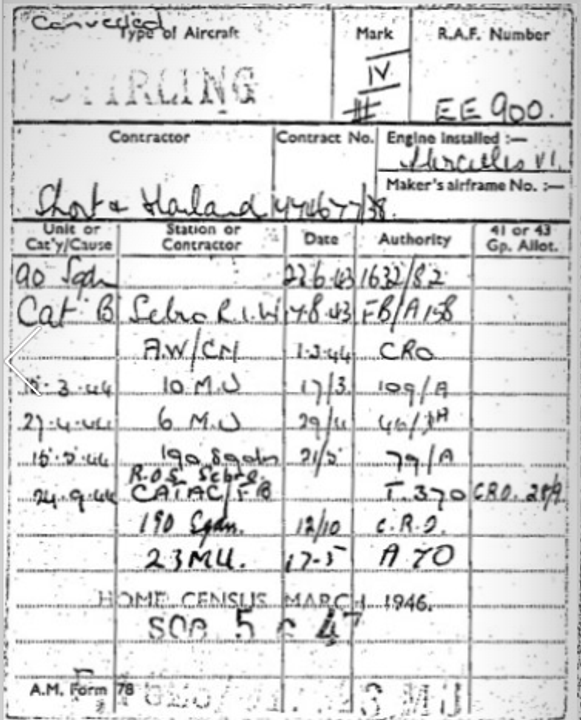 Converted
Type of Aircraft Mark R.A.F. Number
STIRLING IV
EE 900.
Contractor Contract No. Engine installed :—
Hercules VI.
Maker's airframe No. :—
Short & Harland 774677/38.
Unit or Cat'y/Cause Station or Contractor Date Authority 41 or 43 Gp. Allot.
90 Sqdn 22.6.43 1632/82
Cat B Sebro R.I.W 7.8.43 FB/A158
A.W/CN 1.3.44 CRO
3.44 10 M.U 17/3 109/A
27.4.44 6 M.U 29/4
15.5.44 190 Sqdn 21/5 79/A
R.O.S. Sebro.
24.9.44 CAT AC/FB T.370 CRO.
190 Sqdn. 12/10 C.R.O.
23 MU. 17-5 A 70
HOME CENSUS MARCH 1946.
5 47
A.M. Form 78